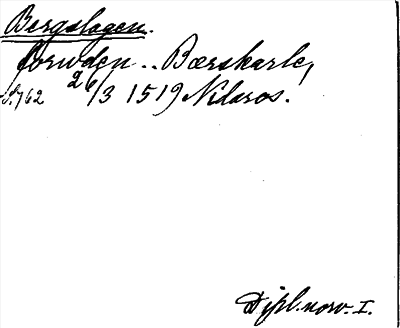 Bergslagen.
forwden .. Bærskarle,
S. 762 26/3 1519 Nidaros.
Dipl. norv. I.